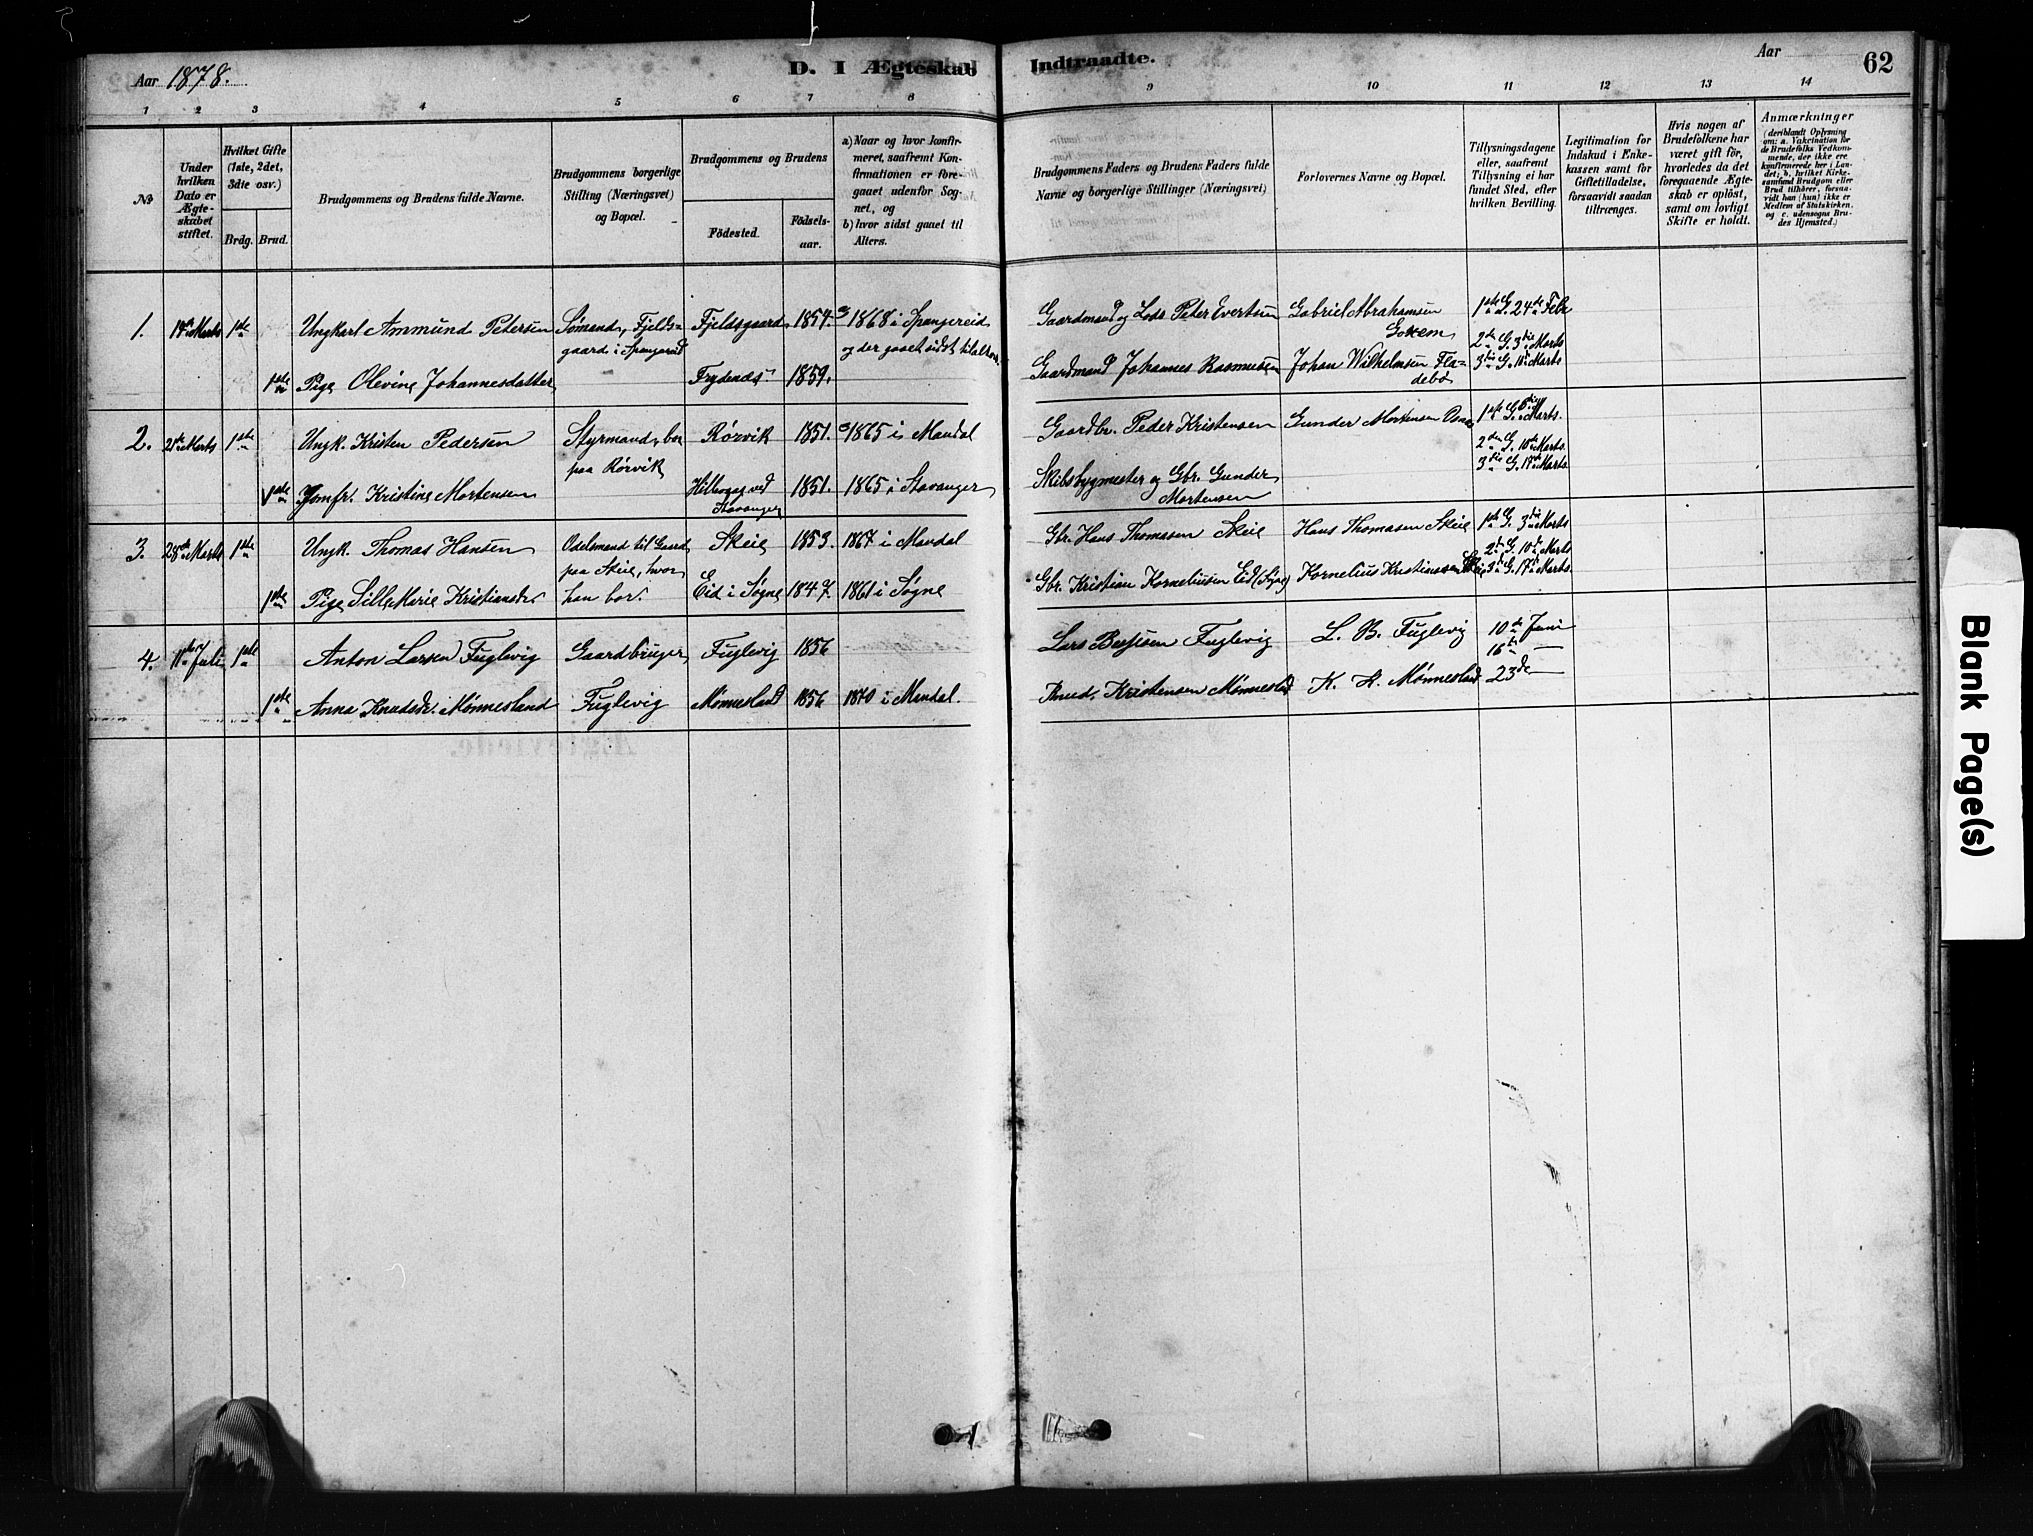 Aar 1878.
D. I Ægteskab Indtraadte.
Aar
62
1 2 3 4 5 6 7 8 9 10 11 12 13 14
№
Under hvilken Dato er Ægteskabet stiftet.
Hvilket Gifte (1ste, 2det, 3die osv.)
Brdg. Brud.
Brudgommens og Brudens fulde Navne.
Brudgommens borgerlige Stilling (Næringsvei) og Bopæl.
Brudgommens og Brudens
Födested.
Födselsaar.
a) Naar og hvor konfirmeret, saafremt Konfirmationen er foregaaet udenfor Sognet, og
b) hvor sidst gaaet til Alters.
Brudgommens Faders og Brudens Faders fulde Navne og borgerlige Stillinger (Næringsvei)
Forlovernes Navne og Bopæl.
Tillysningsdagene eller, saafremt Tillysning ei har fundet Sted, efter hvilken Bevilling.
Legitimation for Indskud i Enkekassen samt for Giftetilladelse, forsaavidt saadan tiltrænges.
Hvis nogen af Brudefolkene har været gift för, hvorledes da det foregaaende Ægteskab er oplöst, samt om lovligt Skifte er holdt.
Anmærkninger
(deriblandt Oplysning om: a. Vakcination for de Brudefolks Vedkommende, der ikke ere konfirmerede her i Landet; b. hvilket Kirkesamfund Brudgom eller Brud tilhører, forsaavidt han (hun) ikke er Medlem af Statskirken, og c. udensogns Brudes Hjemsted.)
1. 1ste Ungkarl Ammund Pedersen Sømand, Fjeldsgaard i Spangereid Fjeldsgaard 1854. 1868 i Spangereid og der gaaet sidst til alters. Gaardmand og Lods Peter Evertsen Gabriel Abrahamsen 1ste G. 24de Febr
2den G. 3die Marts
1ste Pige Olevine Johannesdatter Frydenæs 1859. Gaardmand Johannes Rasmusen Johan Wilhelmsen Fladebø 3die G. 10de Marts
2. 21de Marts 1ste Ungk. Kristen Pedersen Styrmand, bor paa Rørvik Rørvik 1851. 1865 i Mandal Gaardbr. Peder Kristensen Gunder Mortensen 1ste G. Marts.
2den G. 10de Marts
1ste Jomfr. Kristine Mortensen ved Stavanger 1851. 1865 i Stavanger Skibsbygmester og Gbr. Gunder Mortensen 3die G. 17de Marts.
3. 28de Marts 1ste Ungk. Thomas Hansen Odelsmand til Gaard paa Skeie, hvor han bor. Skeie 1853. 1867 i Mandal Gbr. Hans Thomasen Skeie Hans Thomasen Skeie 1ste G. 3die Marts
2den G. 10de Marts
1ste Pige Sille Marie Kristiansdr Eid i Søgne 1847. 1861 i Søgne Gbr. Kristian Korneliussen Eid (Søgne) Kornelius Kristianssen 3die G. 17de Marts.
4. 11te Juli 1ste Anton Larsen Fuglevig Gaardbruger Fuglevig Fuglevig 1856 Lars Fuglevig L. B. Fuglevig 10de Juni
16de —
1ste Anna Knudsdr. Mønnesland Mønnesland 1856 1870 i Mandal. Knud Kristensen Mønnesland K. K. Mønnesland 23de —
Blank Page(s)